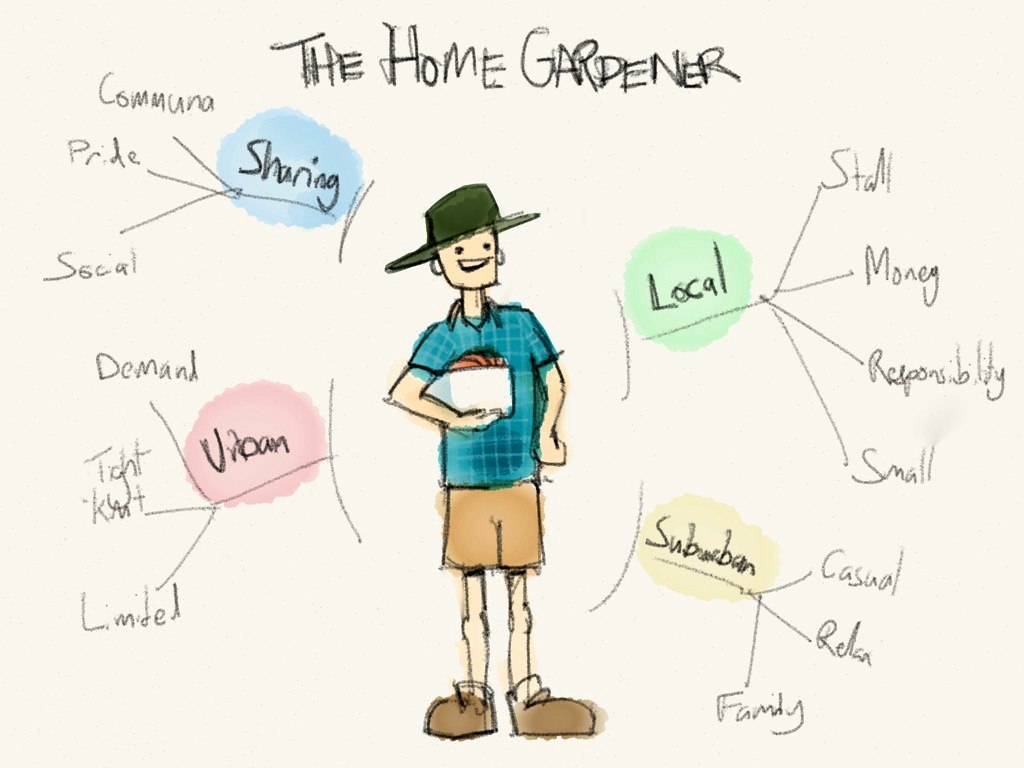 THE HOME GARDENER
Communa
Pride
Social
Sharing
Demand
Tight
Knit
Limited
Urban
Local
Stall
Money
Responsibility
Small
Suburban
Casual
Relax
Family